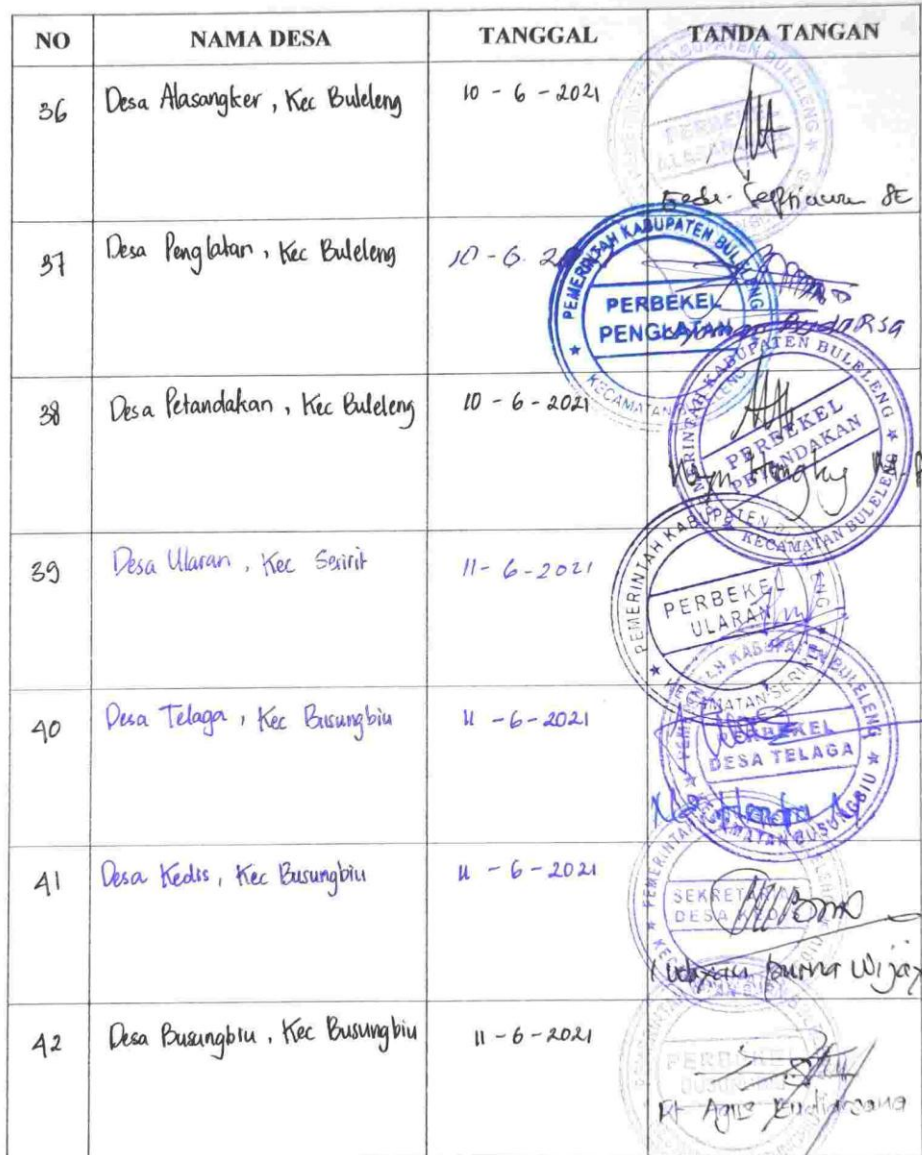 NO NAMA DESA TANGGAL TANDA TANGAN
36 Desa Alasangker, Kec Buleleng 10 - 6 - 2021
PERBEKEL
ALASANGKER
37 Desa Penglatan, Kec Buleleng 10 - 6. 20
PEMERINTAH KABUPATEN BULELENG
PERBEKEL
PENGLATAN
KECAMATAN BULELENG
38 Desa Petandakan, Kec Buleleng 10 - 6 - 2021
PEMERINTAH KABUPATEN BULELENG
PERBEKEL
PETANDAKAN
KECAMATAN BULELENG
39 Desa Ularan, Kec Seririt 11 - 6 - 2021
PEMERINTAH KABUPATEN BULELENG
PERBEKEL
ULARAN
KECAMATAN SERIRIT
40 Desa Telaga, Kec Busungbiu 11 - 6 - 2021
PEMERINTAH KABUPATEN BULELENG
PERBEKEL
DESA TELAGA
KECAMATAN BUSUNGBIU
41 Desa Kedis, Kec Busungbiu 11 - 6 - 2021
SEKRETARIS
DESA KEDIS
42 Desa Busungbiu, Kec Busungbiu 11 - 6 - 2021
PERBEKEL
BUSUNGBIU